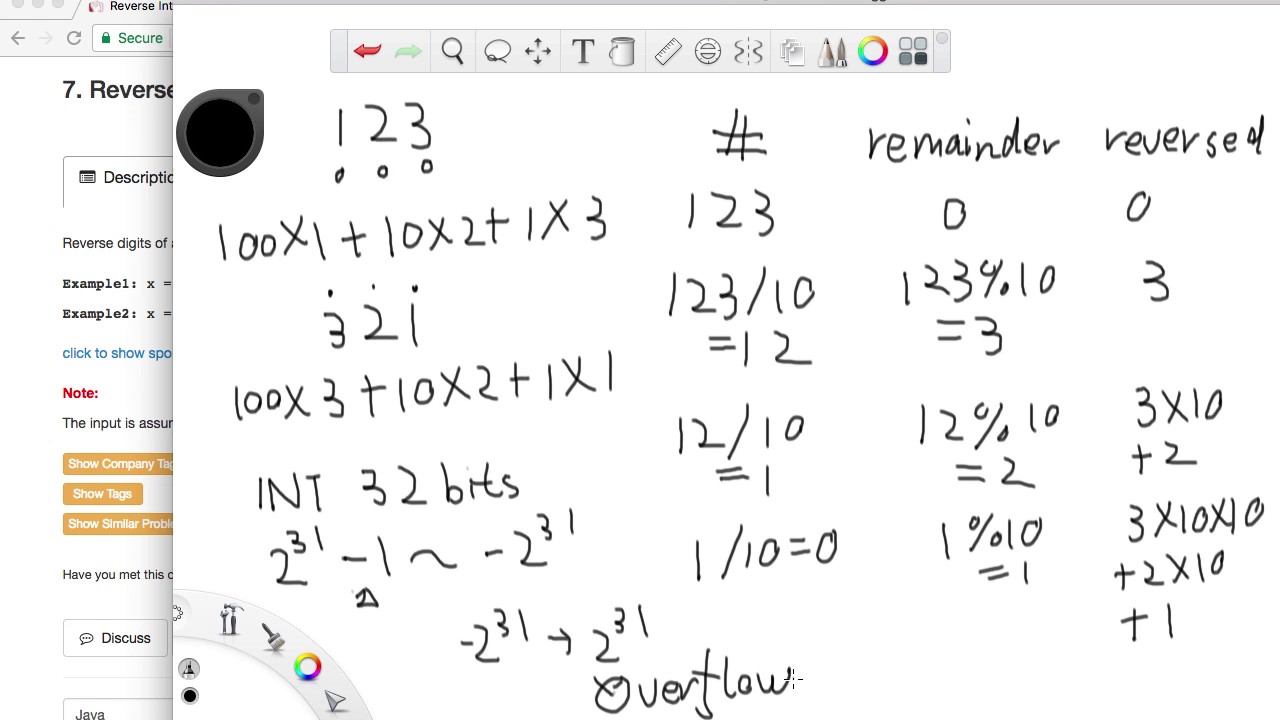 Reverse Int
Secure
7. Reverse
Descriptio
Reverse digits of a
Example1: x =
Example2: x =
click to show spo
Note:
The input is assum
Show Company Tag
Show Tags
Show Similar Proble
Have you met this q
Discuss
Java
T
1 2 3
100X1 + 10X2 + 1X3
3 2 1
100X3 + 10X2 + 1X1
INT 32 bits
2^31 - 1 ~ -2^31
-2^31 → 2^31
Overflow
# remainder reversed
123 0 0
123/10 123%10 3
=12 =3
12/10 12%10 3X10
=1 =2 +2
1/10=0 1%10 3X10X10
=1 +2X10
+1